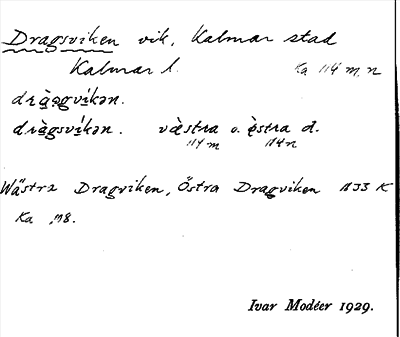 Dragsviken vik, Kalmar stad
Kalmar l. Ka 114 m, n
drà̱ǝgví̱kǝn.
drà̱gsví̱kǝn. væ̀stra o. ø̀stra d.
114 m 114 n
Wästra Dragviken, Östra Dragviken
Ka
Ivar Modéer 1929.